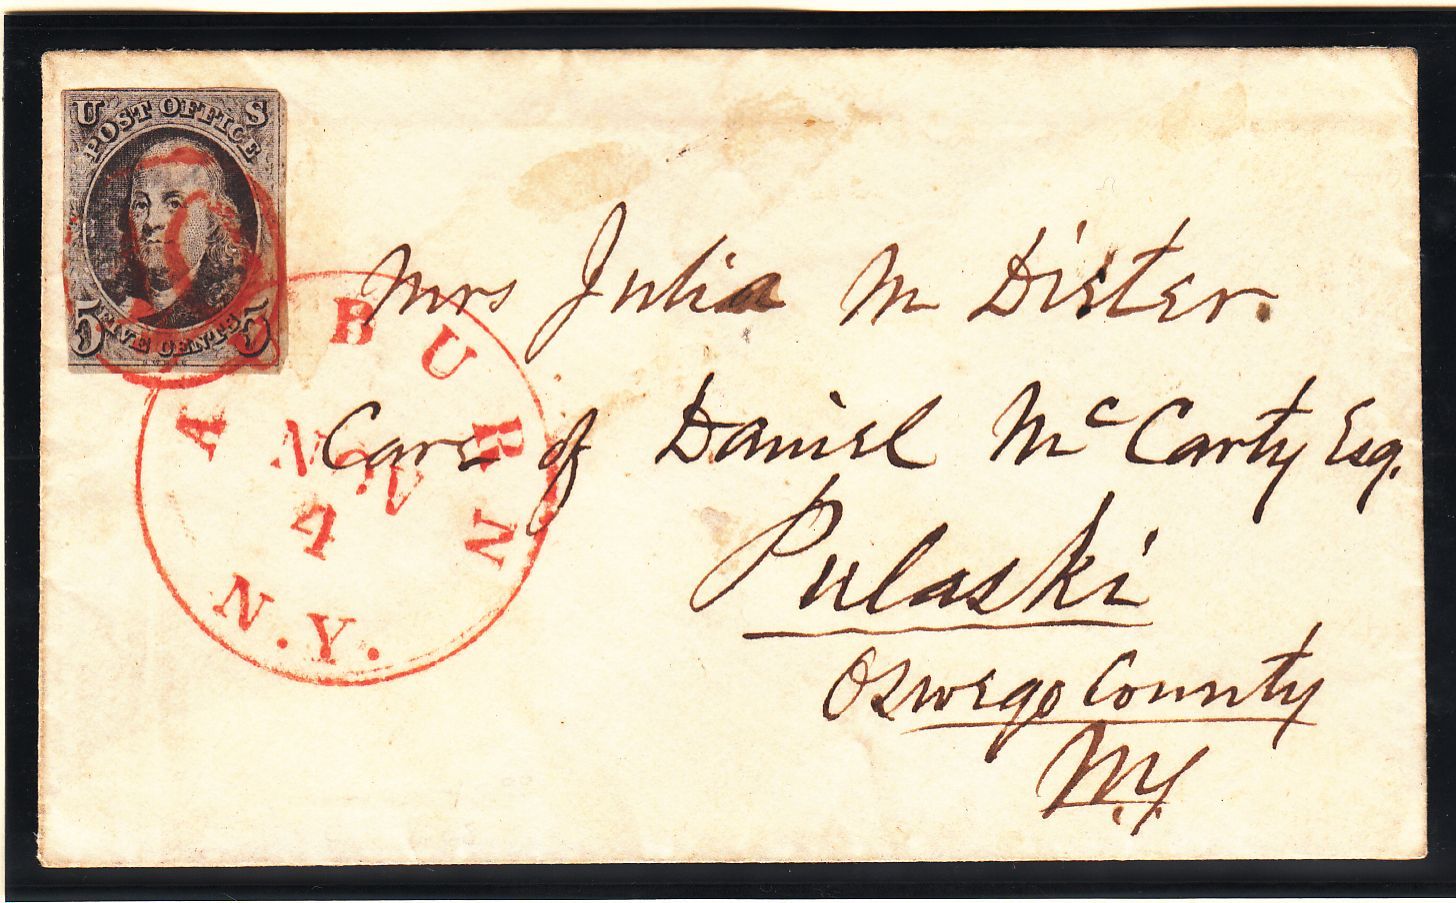 U S
POST OFFICE
5 FIVE CENTS 5
AUBURN
NOV
4
N.Y.
Mrs Julia M Dixter.
Care of Daniel McCarty Esq.
Pulaski
Oswego County
N.Y.